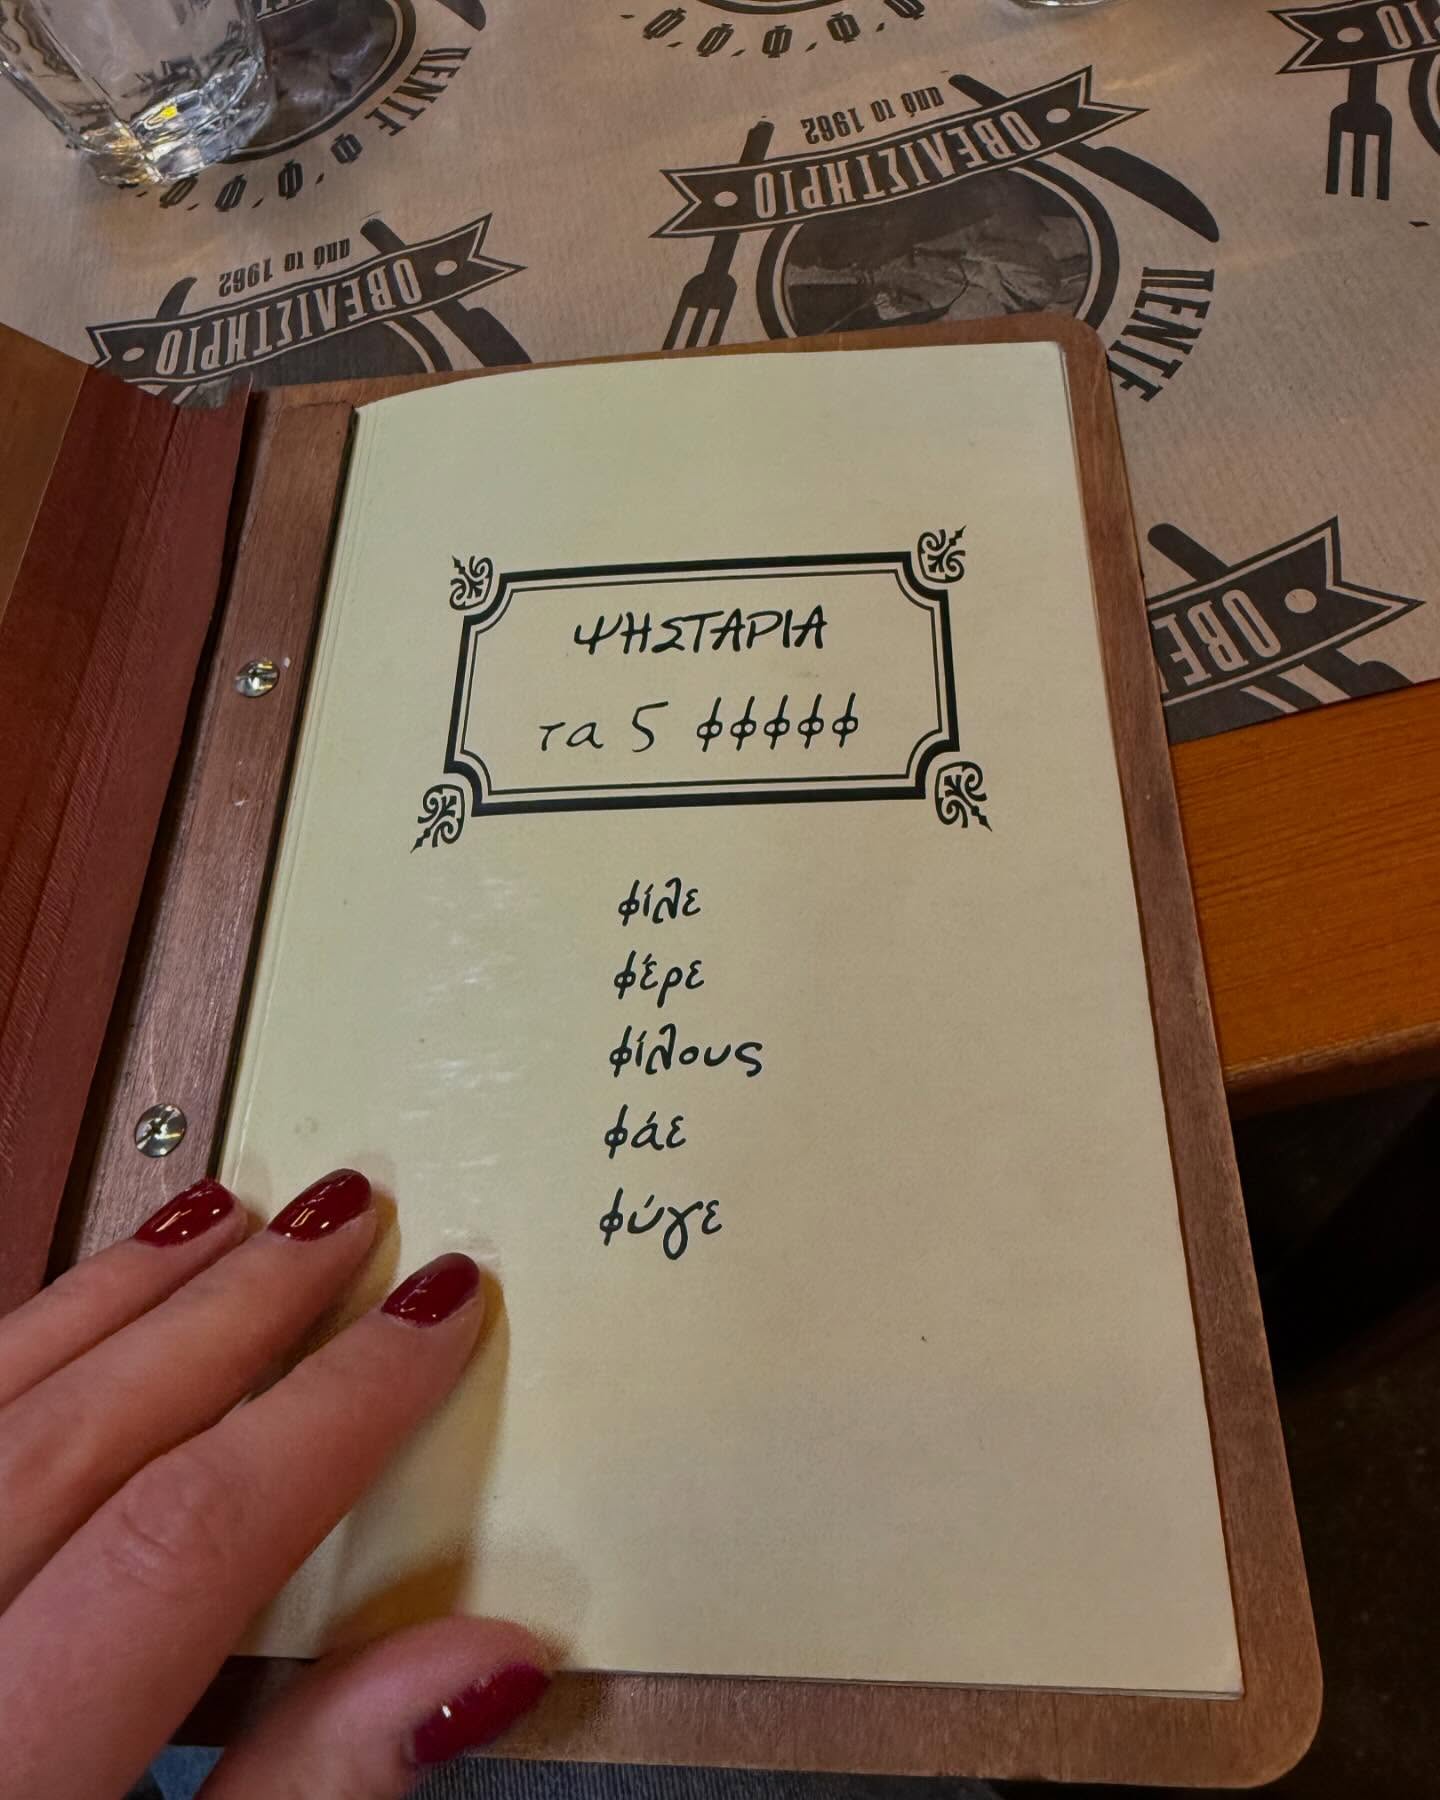 Φ.Φ.Φ.Φ.
ΠΕΝΤΕ Φ.Φ.Φ.Φ.
από το 1962
ΟΒΕΛΙΣΤΗΡΙΟ
ΠΕΝΤΕ
από το 1962
ΟΒΕΛΙΣΤΗΡΙΟ
ΨΗΣΤΑΡΙΑ
τα 5 φφφφφ
φίλε
φέρε
φίλους
φάε
φύγε